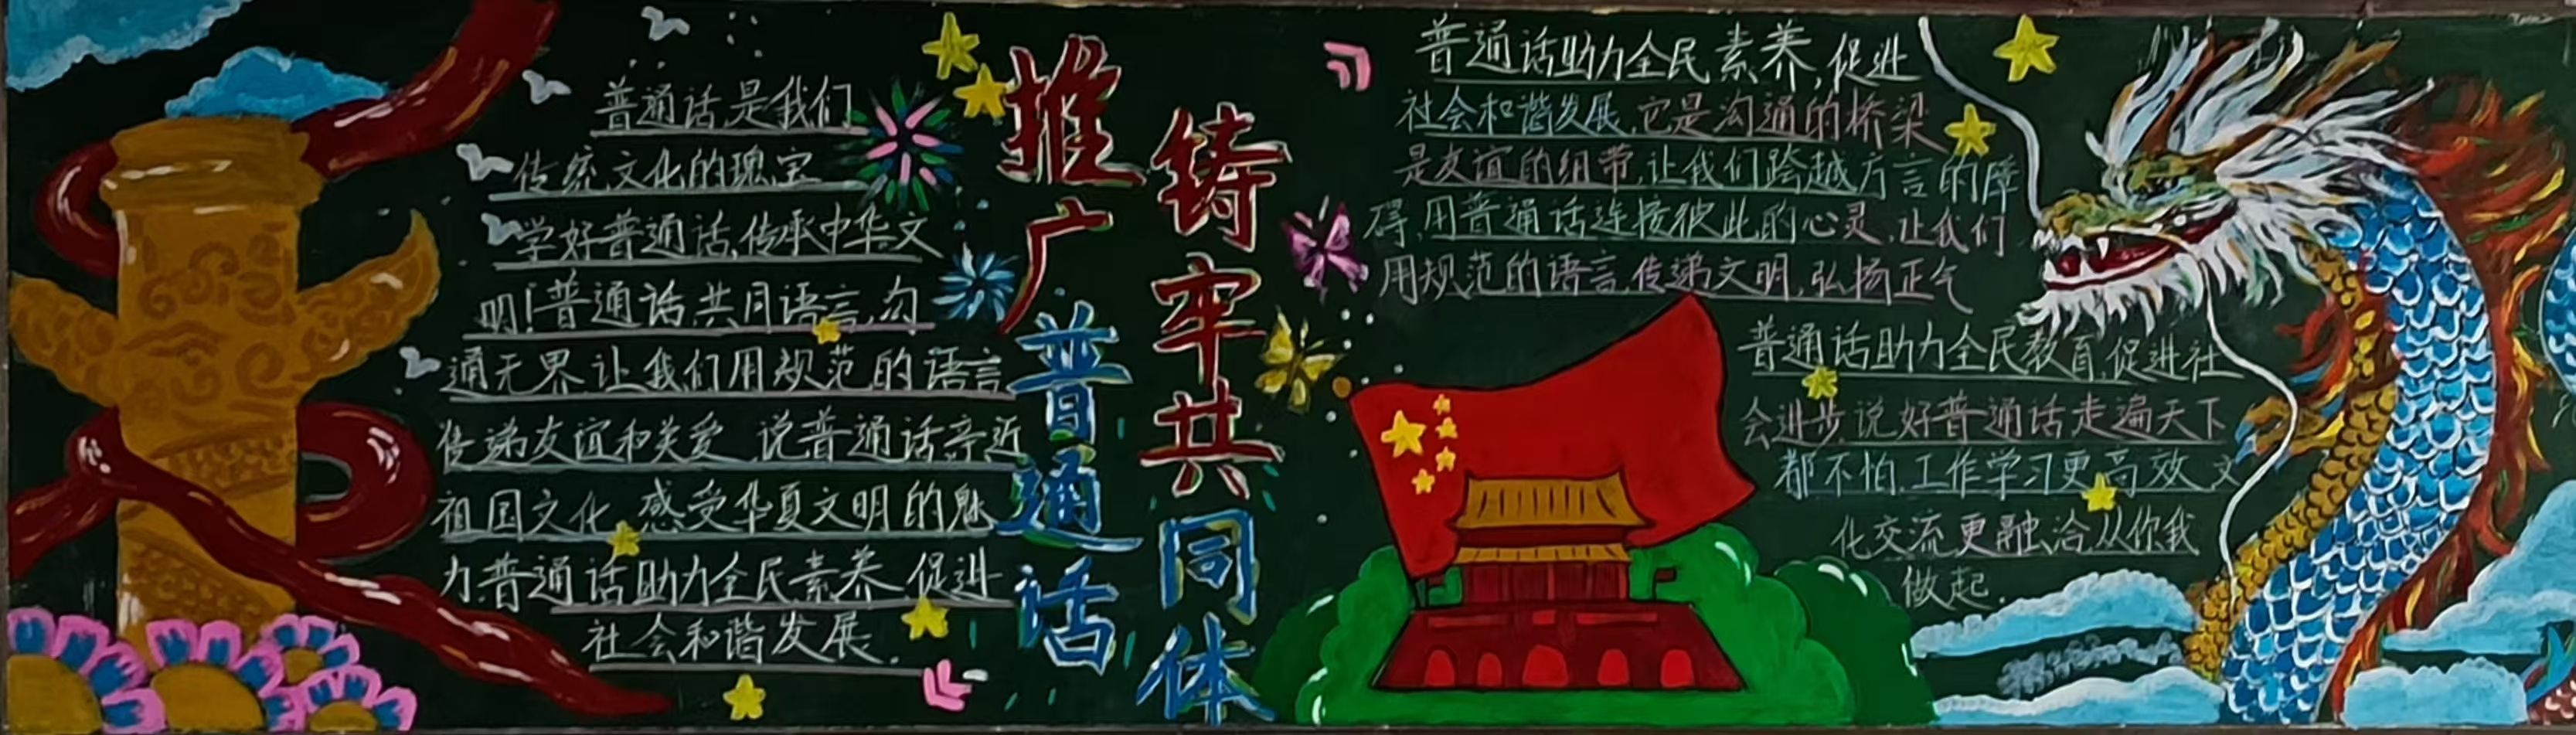 普通话是我们
传统文化的瑰宝
学好普通话,传承中华文
明!普通话,共同语言,勾
通无界,让我们用规范的语言
传递友谊和关爱,说普通话亲近
祖国文化,感受华夏文明的魅
力,普通话助力全民素养,促进
社会和谐发展.
推广普通话
铸牢共同体
普通话助力全民素养,促进
社会和谐发展,它是沟通的桥梁
是友谊的纽带,让我们跨越方言的障
碍,用普通话连接彼此的心灵,让我们
用规范的语言,传递文明,弘扬正气
普通话助力全民教育,促进社
会进步,说好普通话走遍天下
都不怕.工作学习更高效,文
化交流更融洽,从你我
做起.